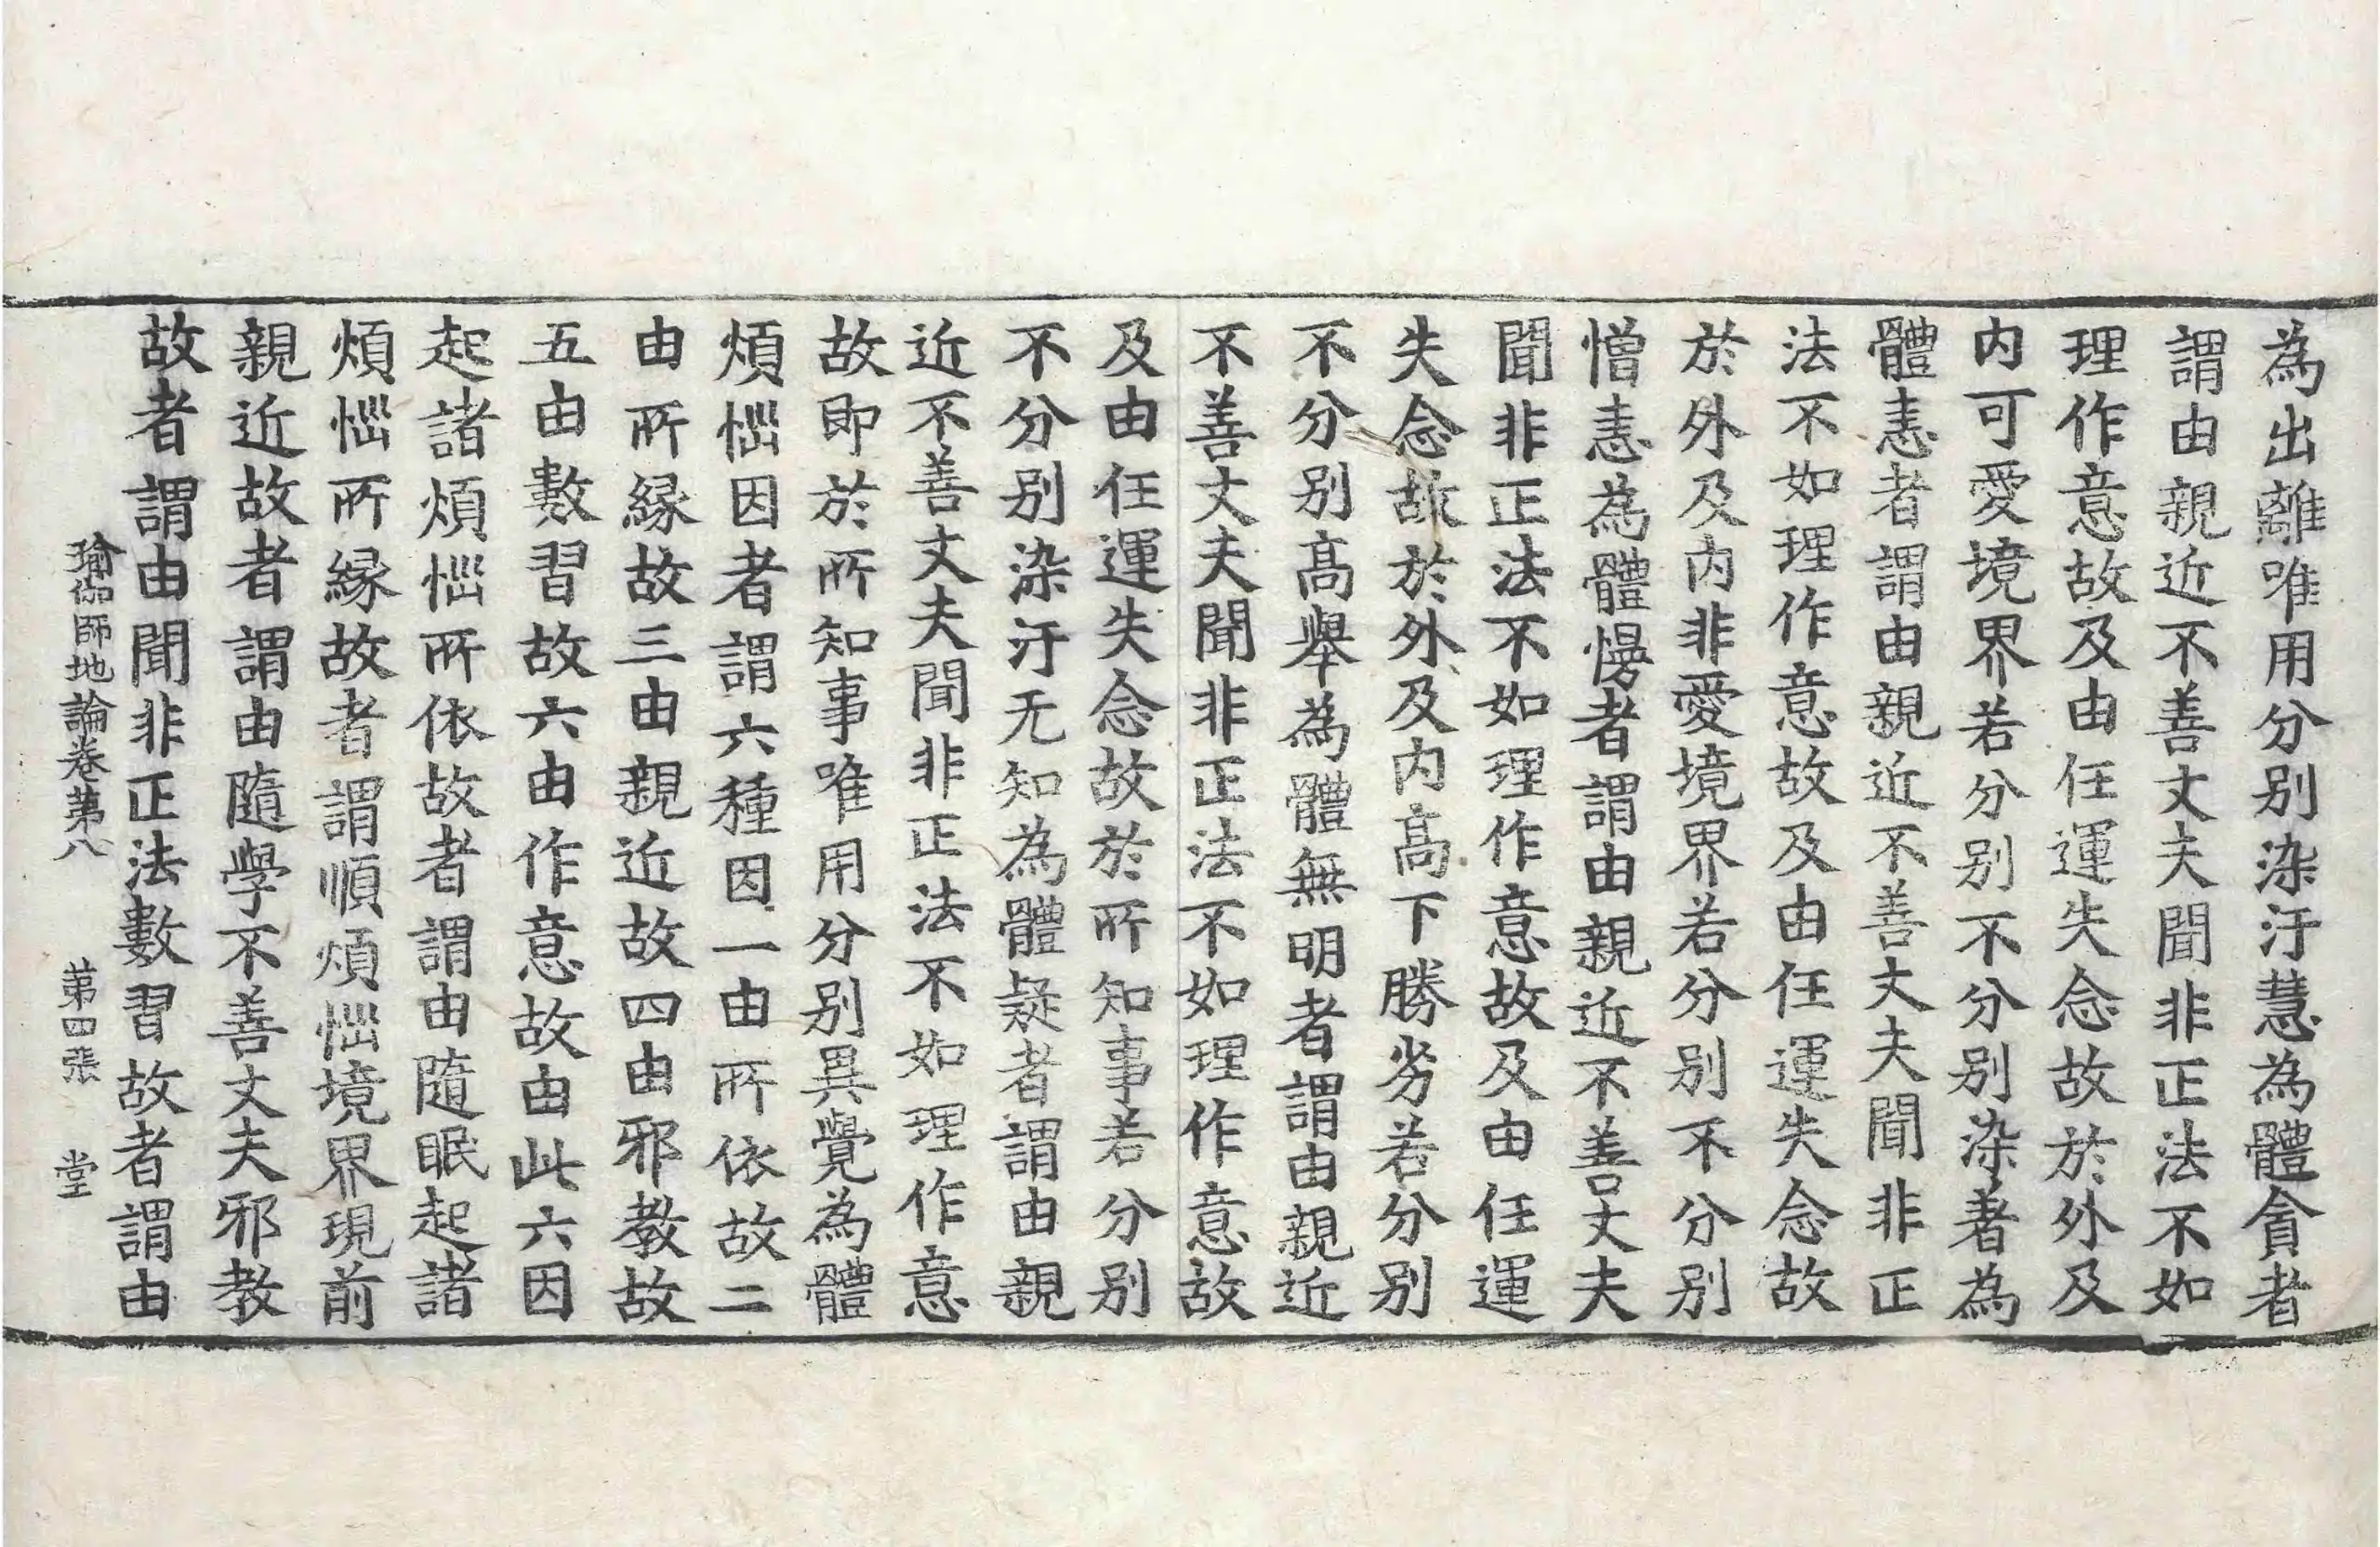 為出離唯用分別染汙慧為體貪者
謂由親近不善丈夫聞非正法不如
理作意故及由任運失念故於外及
内可愛境界若分別不分別染著為
體恚者謂由親近不善丈夫聞非正
法不如理作意故及由任運失念故
於外及内非愛境界若分別不分別
憎恚為體慢者謂由親近不善丈夫
聞非正法不如理作意故及由任運
失念故於外及内髙下勝劣若分別
不分別髙舉為體無明者謂由親近
不善丈夫聞非正法不如理作意故
及由任運失念故於所知事若分別
不分別染汙无知為體疑者謂由親
近不善丈夫聞非正法不如理作意
故即於所知事唯用分別異覺為體
煩惱因者謂六種因一由所依故二
由所縁故三由親近故四由邪教故
五由數習故六由作意故由此六因
起諸煩惱所依故者謂由隨眠起諸
煩惱所縁故者謂順煩惱境界現前
親近故者謂由隨學不善丈夫邪教
故者謂由聞非正法數習故者謂由
瑜伽師地論卷第八 第四張 堂